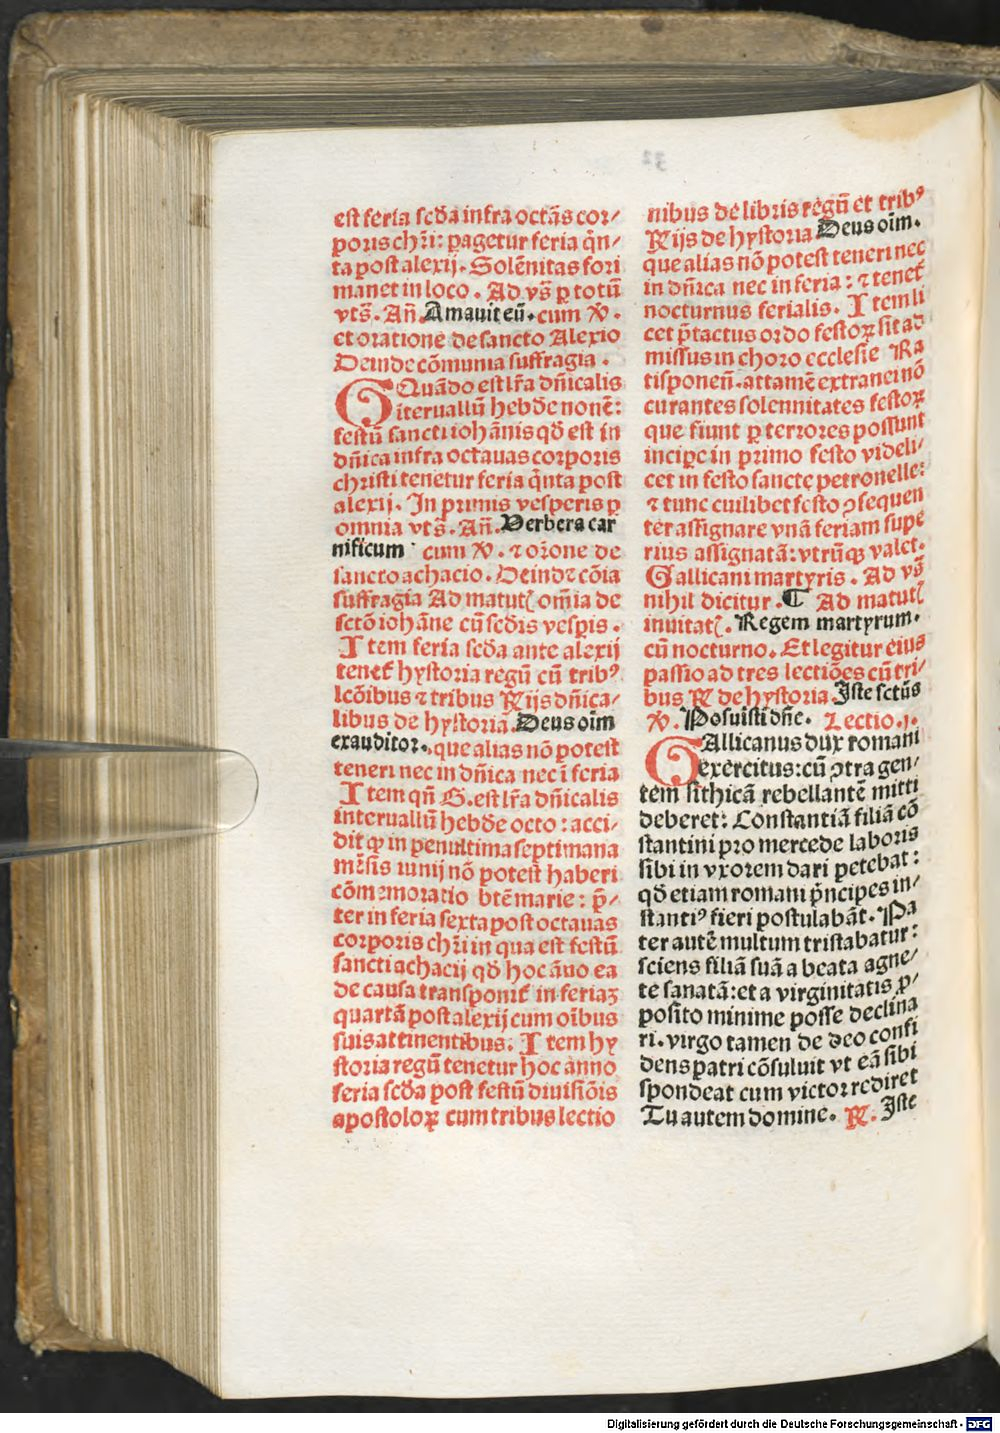 est feria scd̄a infra octãs cor⸗
poris chr̃i: pagetur feria q̃n⸗
ta post alexij. Solẽnitas fori
manet in loco. Ad vs̃ ꝑ totũ
vts̃. Añ. Amauit eũ. cum ℣.
et oratione de sancto Alexio
Deinde cõmunia suffragia.
GQuãdo est lr̃a dñicalis
ĩteruallũ hebde nonẽ:
festũ sancti iohãnis qd̃ est in
dñica infra octauas corporis
christi tenetur feria q̃nta post
alexij. In primis vesperis ꝑ
omnia vts̃. Añ. Verbera car
nificum cum ℣. ⁊ or̃one de
sancto achacio. Deindꝛ cõia
suffragia Ad matutꝭ om̃ia de
sctõ iohãne cũ scd̃is vesp̃is.
Item feria scd̃a ante alexij
tenet᷑ hystoria regũ cũ tribꝰ
lcõibus ⁊ tribus ℟ijs dñica⸗
libus de hystoria. Deus oim̃
exauditor. que alias nõ potest
teneri nec in dñica nec ĩ feria
Item qñ G. est lr̃a dñicalis
interuallũ hebde octo: acci⸗
dit ꝙ in penultima septimana
mẽsis iunij nõ potest haberi
cõmemoratio btẽ marie: p̃⸗
ter in feria sexta post octauas
corporis chr̃i in qua est festũ
sancti achacij qd̃ hoc ãno ea
de causa transponit᷑ in feriaꝫ
quartã post alexij cum oĩbus
suis attinentibus. Item hy
storia regũ tenetur hoc anno
feria scd̃a post festũ diuisiõis
apostoloꝝ cum tribus lectio
nibus de libris regũ et tribꝰ
℟ijs de hystoria Deus oim̃.
que alias nõ potest teneri nec
in dñica nec in feria: ⁊ tenet᷑
nocturnus ferialis. Item li
cet p̃tactus ordo festoꝝ sit ad
missus in choro ecclesie Ra
tisponeñ. attamẽ extranei nõ
curantes solennitates festoꝝ
que fiunt ꝑ terrores possunt
incipe in primo festo videli⸗
cet in festo sancte petronelle:
⁊ tunc cuilibet festo ↄsequen
ter assignare vnã feriam supe
rius assignatã: vtrũqꝫ valet.
Gallicani martyris. Ad vs̃
nihil dicitur. ¶ Ad matutꝭ
inuitatꝭ. Regem martyrum.
cũ nocturno. Et legitur eius
passio ad tres lectiões cũ tri⸗
bus ℟ de hystoria Iste sctũs
℣. Posuisti dñe. Lectio.j.
GAllicanus dux romani
exercitus: cũ ↄtra gen⸗
tem sithicã rebellantẽ mitti
deberet: Constantiã filiã cõ
stantini pro mercede laboris
sibi in vxorem dari petebat:
qd̃ etiam romani p̃ncipes in⸗
stantiꝰ fieri postulabãt. Pa
ter autẽ multum tristabatur:
sciens filiã suã a beata agne⸗
te sanatã: et a virginitatis ꝓ⸗
posito minime posse declina
ri. virgo tamen de deo confi
dens patri cõsuluit vt eã sibi
spondeat cum victor rediret
Tu autem domine. ℟. Iste
Digitalisierung gefördert durch die Deutsche Forschungsgemeinschaft - DFG